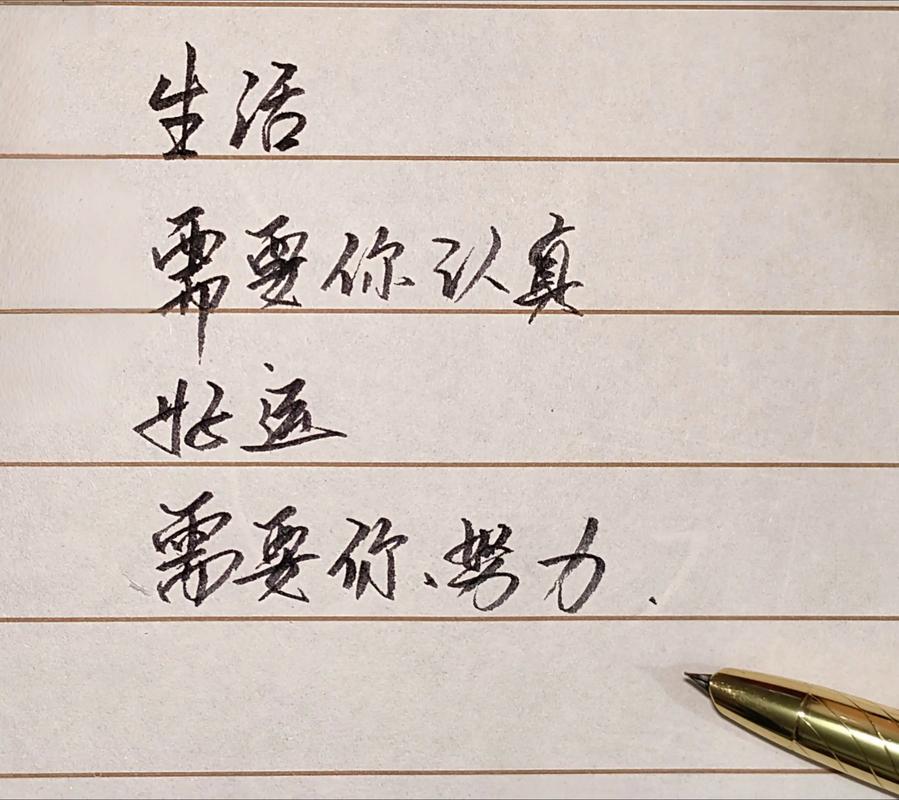 生活
需要你认真
好运
需要你努力.